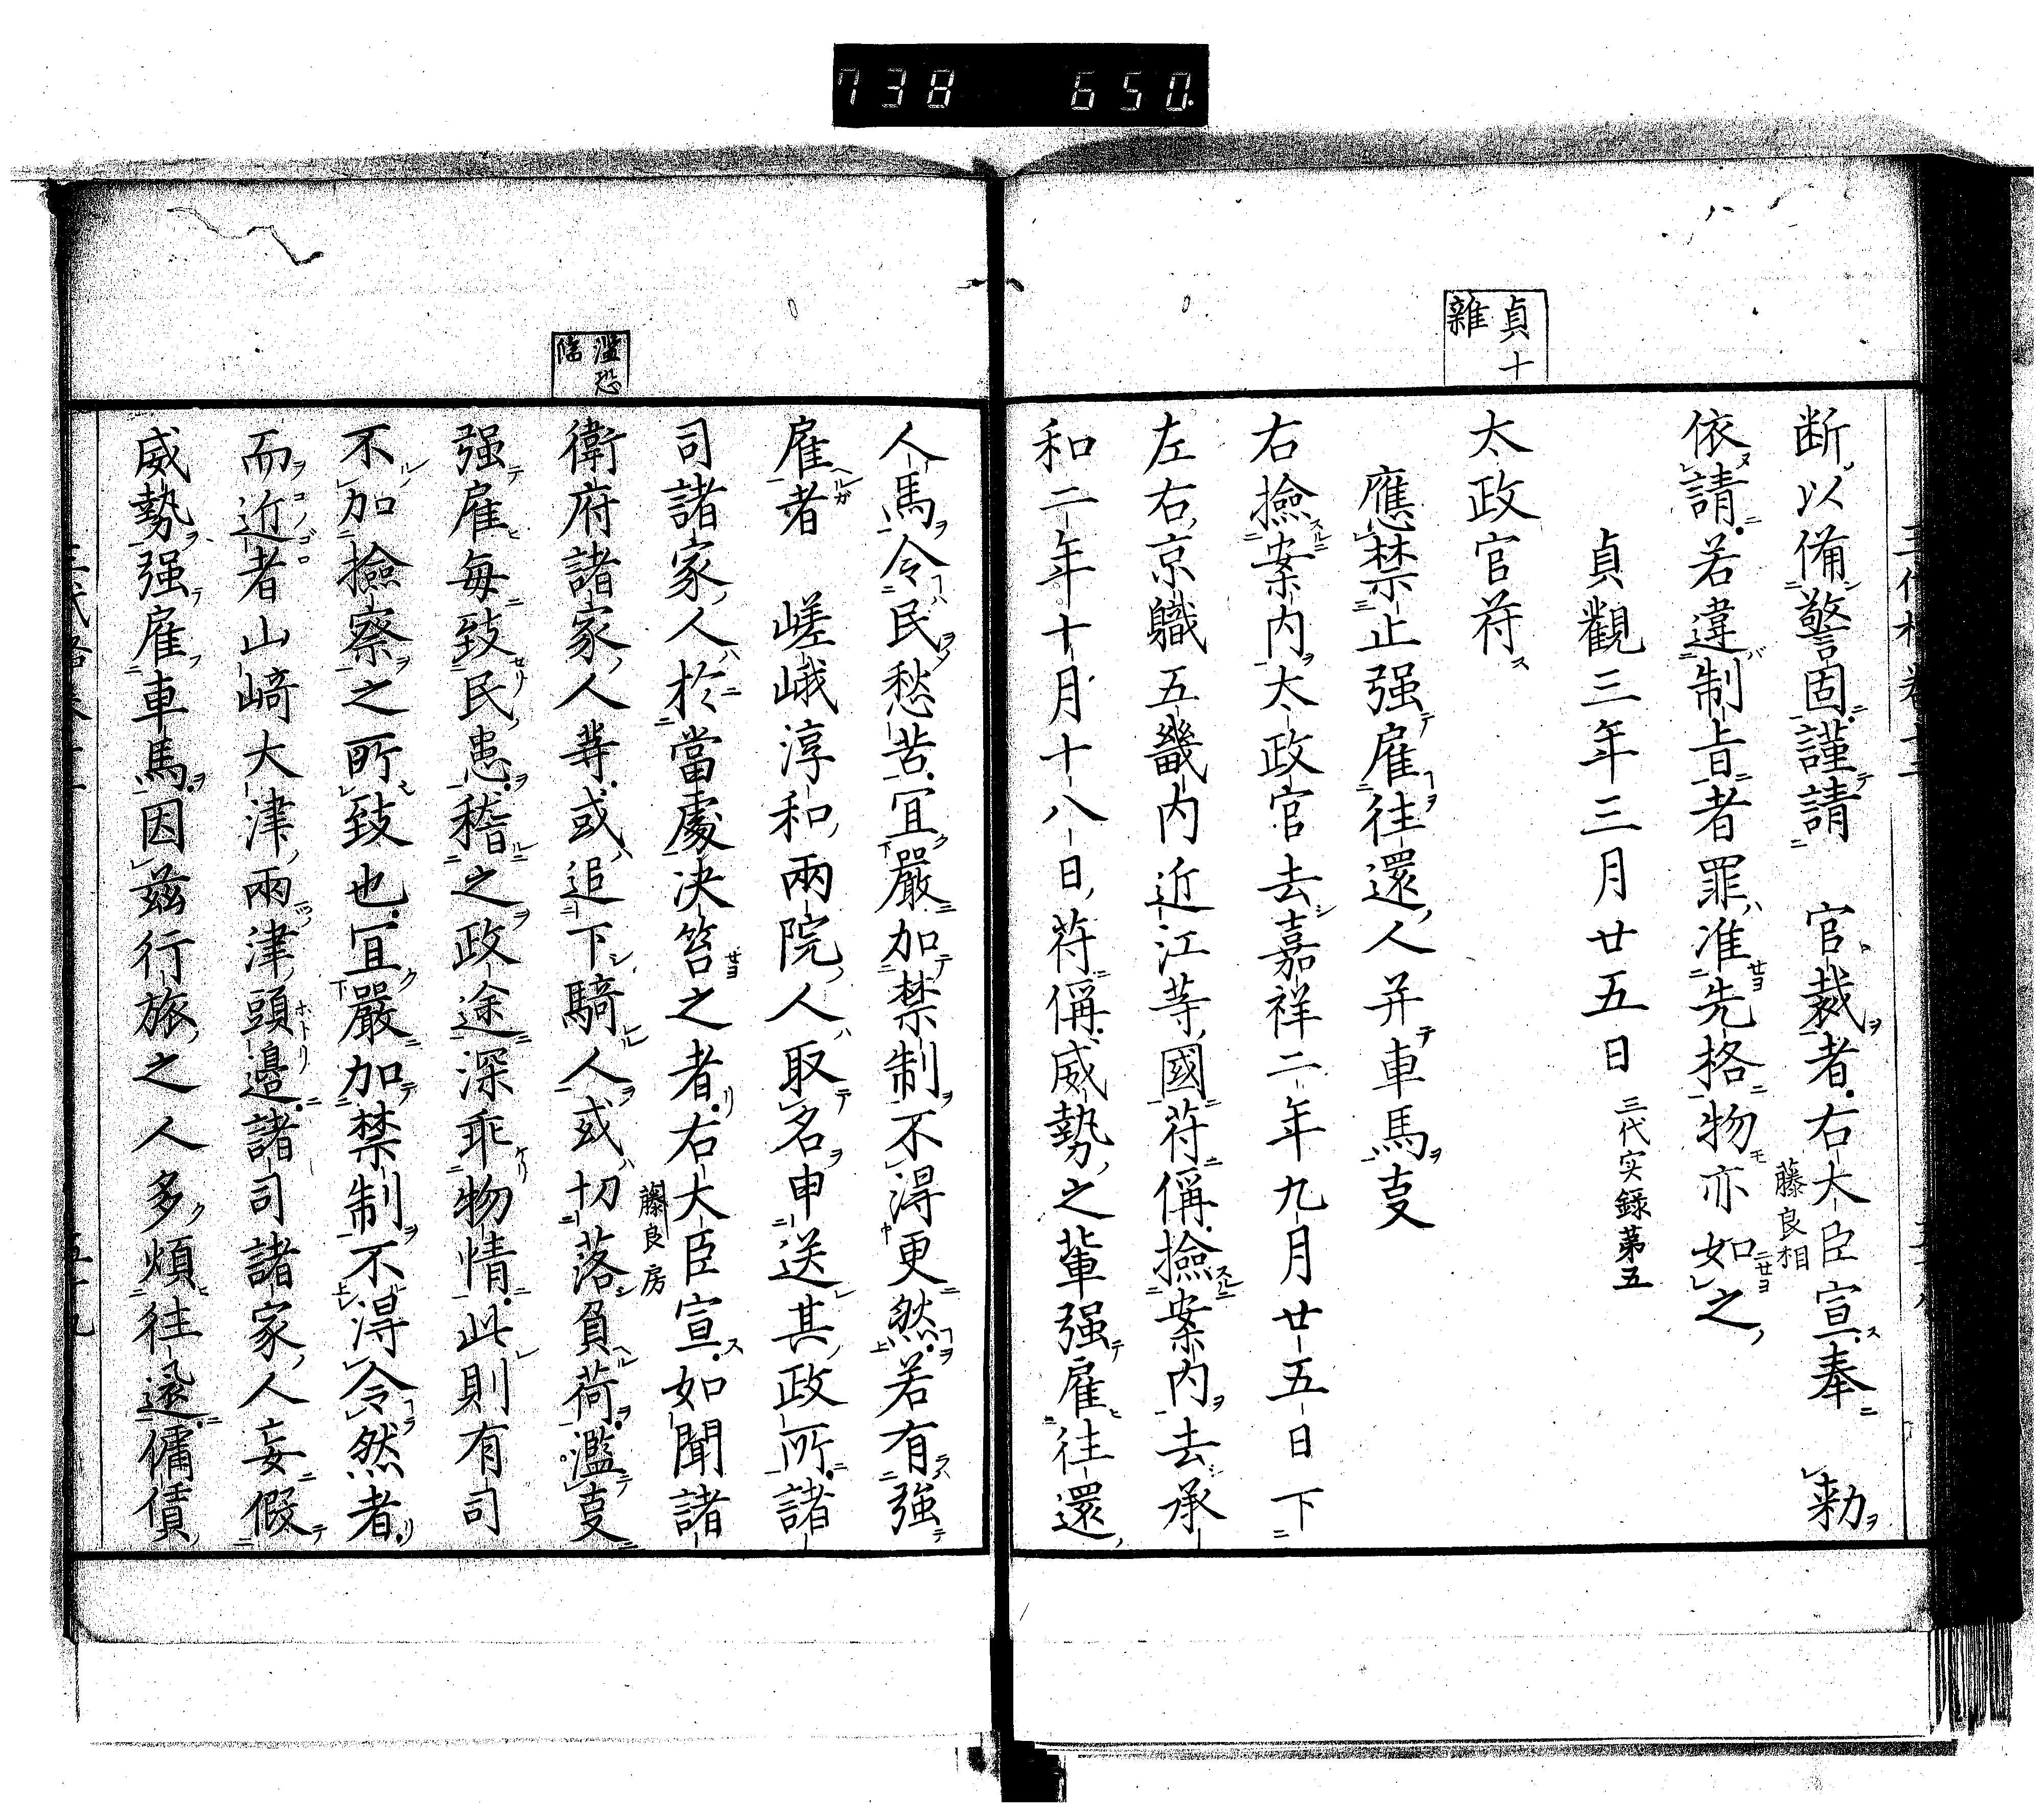 738 650
貞十
雜
断以備警固謹請 官裁者右大臣宣奉 勅
藤良相
依請若違制旨者罪准先格物亦如之
貞觀三年三月廿五日 三代实録第五
太政官符
應禁止强雇往還人并車馬㕝
右撿案内太政官去嘉祥二年九月廿五日下
左右京職五畿内近江等國符偁撿案内去承
和二年十月十八日符偁威勢之輩强雇往還
濫恐
人馬令民愁苦宜嚴加禁制不得更然若有強
雇者 嵯峨淳和兩院人取名申送其政所諸
司諸家人於當處決笞之者右大臣宣如聞諸
藤良房
衛府諸家人等或追下騎人或切落負荷濫㕝
强雇每致民患稽之政途深乖物情此則有司
不加撿察之所致也宜嚴加禁制不得令然者
而近者山﨑大津兩津頭邊諸司諸家人妄假
威勢强雇車馬因茲行旅之人多煩往還傭賃